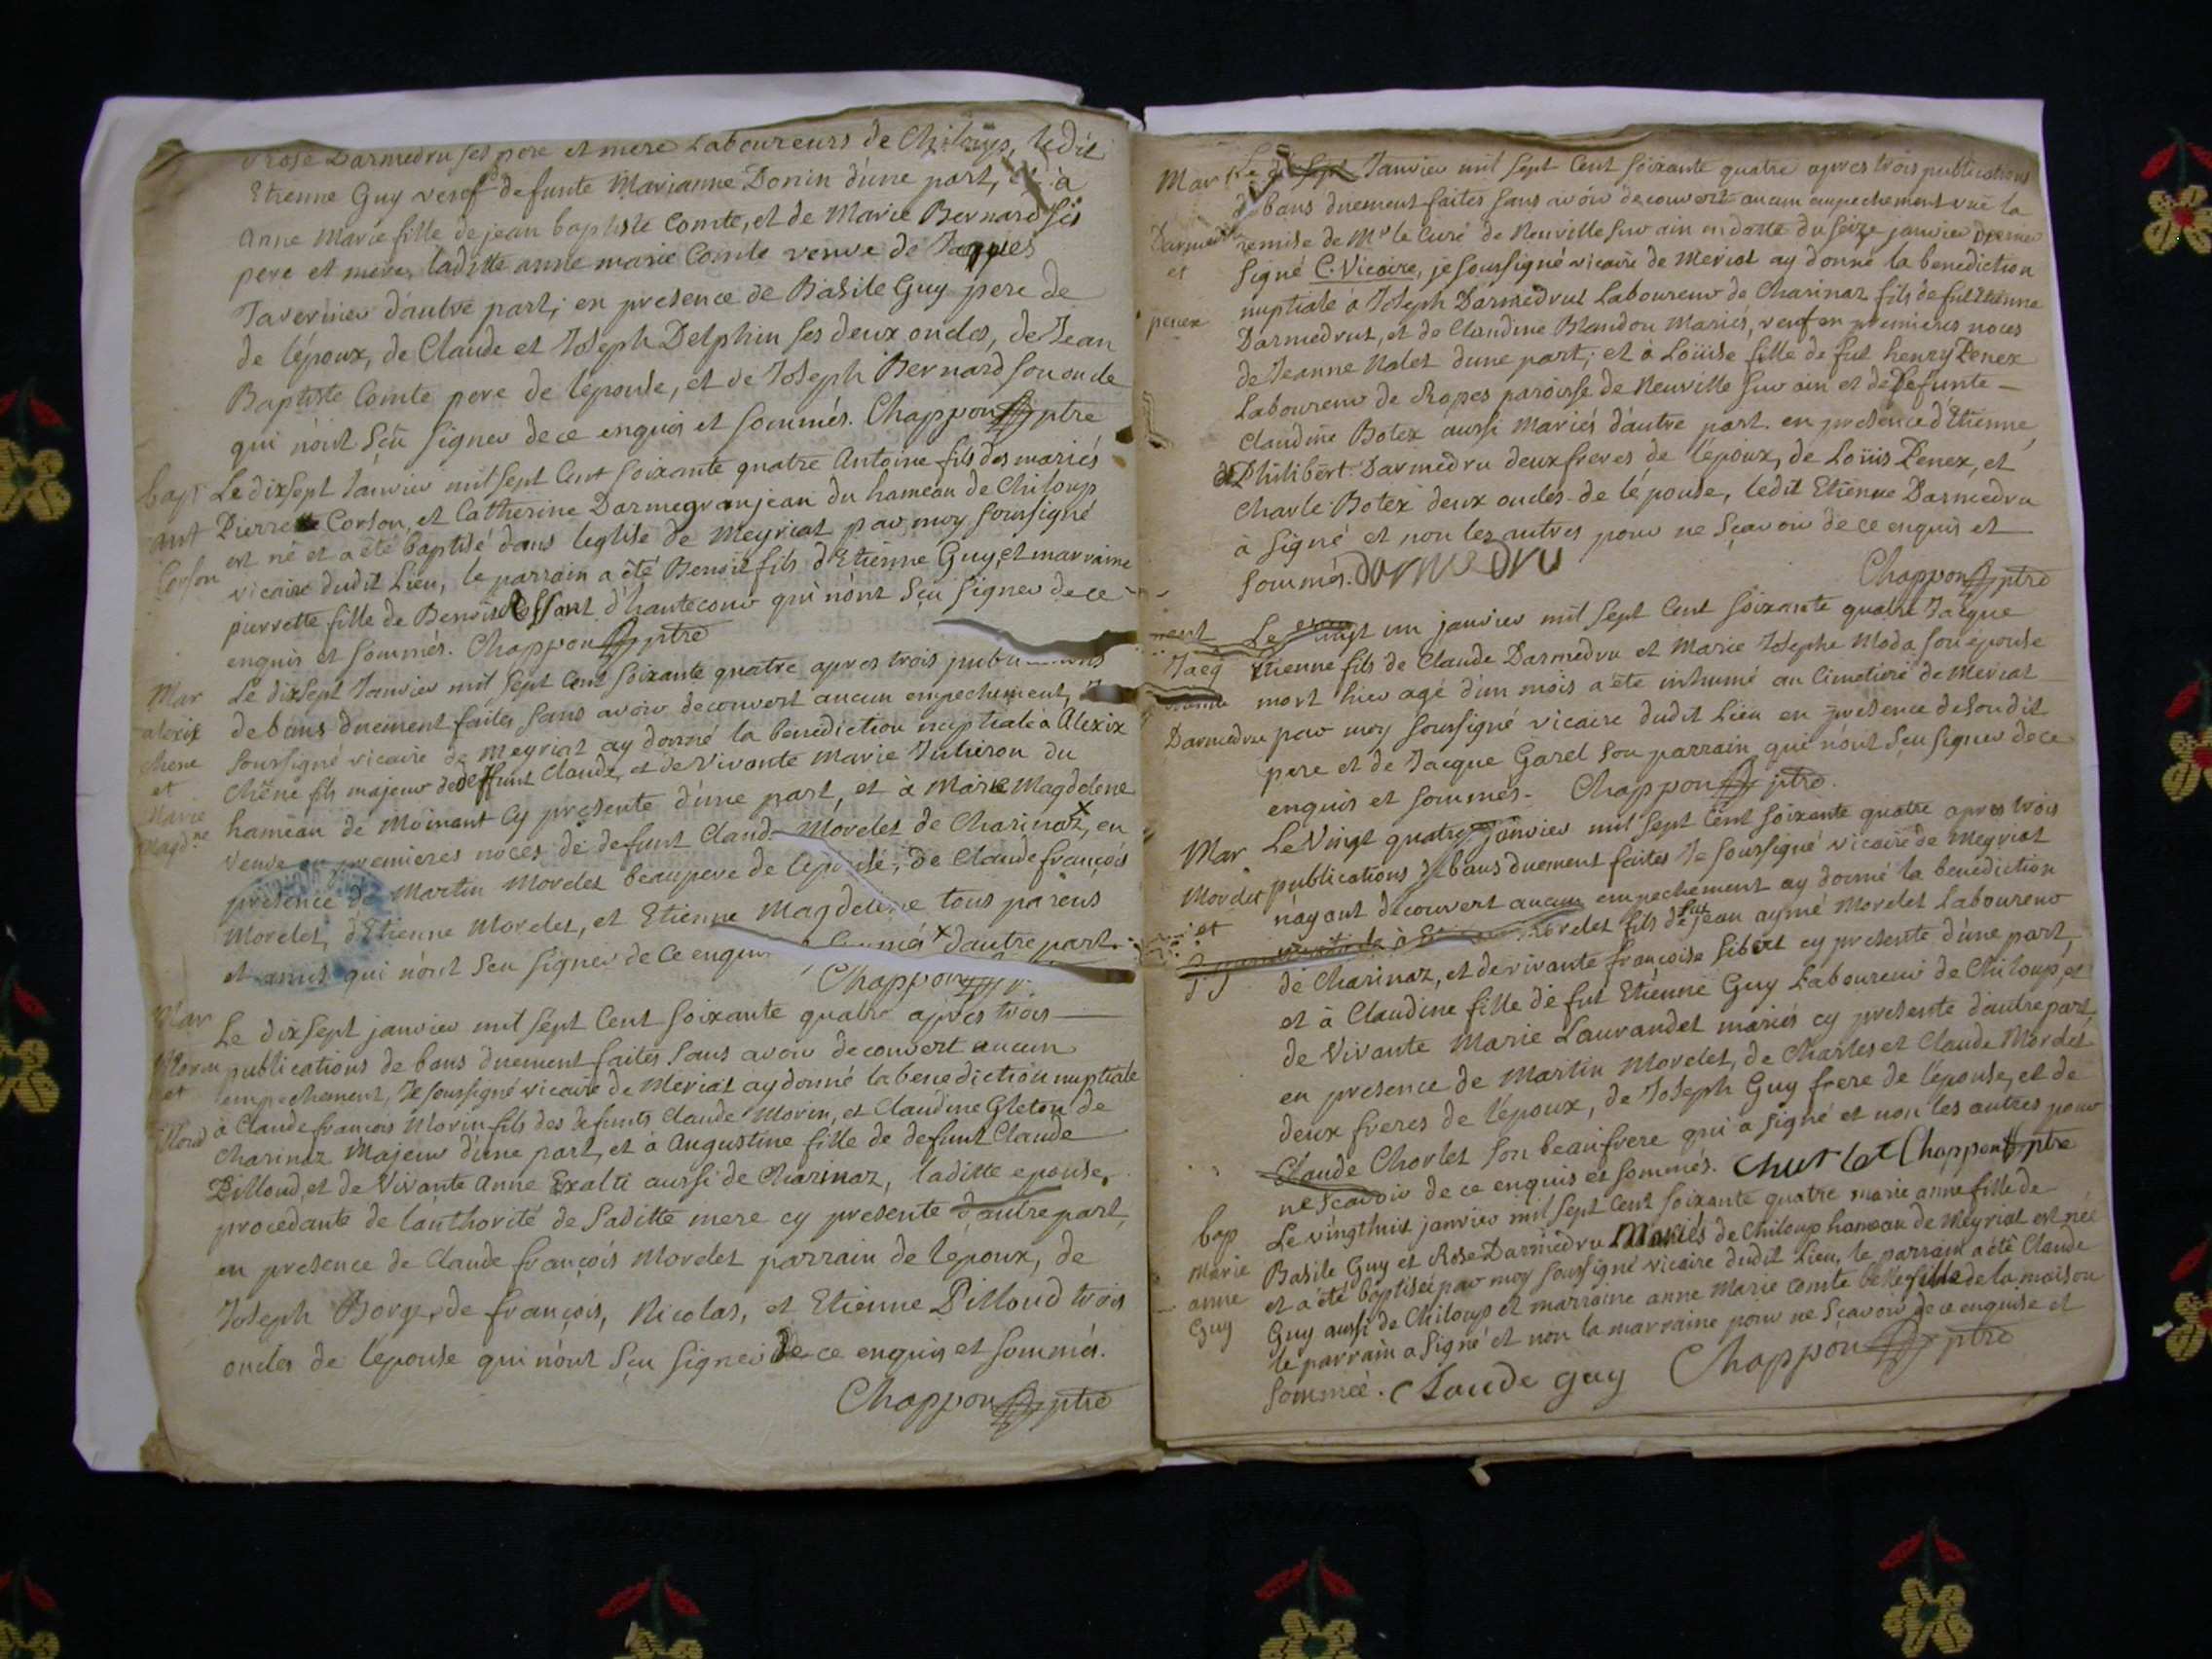 Rose Darmedru ses pere et mere Laboureurs de Chiloup, ledit
Etienne Guy veuf defunte Marianne Donin d'une part, et à
Anne Marie fille de jean baptiste Comte, et de Marie Bernard ses
pere et mere, laditte anne marie Comte veuve de Jacques
Tavernier d'autre part; en presence de Basile Guy pere de
de l'époux, de Claude et Joseph Delphin ses deux oncles, de Jean
Baptiste Comte pere de l'epouse, et de Joseph Bernard son oncle
qui n'ont sçu signer de ce enquis et sommés. Chappon ptre
bapt
ant
Corson
Le dixsept Janvier mil sept Cent soixante quatre Antoine fils des mariés
Pierre Corson, et Catherine Darmegranjean du hameau de Chiloup
est né et a été baptisé dans leglise de Meyriat par moy soussigné
vicaire dudit Lieu, le parrain a été Benoit fils d'Etienne Guy, et marraine
pierrette fille de Benoist d'hautecour qui n'ont sçu signer de ce
enquis et sommés. Chappon ptre
Mar
alexix
chene
et
Marie
Magd.ne
Le dixsept Janvier mil sept Cent soixante quatre apres trois
de bans duement faites sans avoir decouvert aucun empechement, Je
soussigné vicaire de Meyriat ay donné la benediction nuptiale à Alexix
Chêne fils majeur de deffunt Claude, et de Vivante Marie Julliron du
hameau de Moinant Cy presente d'une part, et à Marie Magdelene
veuve en premieres noces de defunt Claude Morelet de Charinaz, en
presence de Martin Morelet beaupere de l'epouse, de Claude françois
Morelet, d'Etienne Morelet, et Etienne Magdelene tous parens
et amis qui n'ont sçu signer de Ce enquis et sommés x d'autre part.
Chappon
Mar
Morin
et
Le dixsept janvier mil sept Cent soixante quatre apres trois
publications de bans duement faites sans avoir decouvert aucun
empechement, Je soussigné vicaire de Meriat ay donné la benediction nuptiale
à Claude françois Morin fils des defunts Claude Morin, et Claudine Gleton de
Charinaz Majeur d'une part, et à Augustine fille de defunt Claude
Pilloud, et de Vivante Anne Exalti aussi de Charinaz, laditte epouse,
procedante de l'authorité de saditte mere cy presente d'autre part,
en presence de Claude françois Morelet parrain de l'epoux, de
Joseph Borge, de françois, Nicolas, et Etienne Pilloud trois
oncles de l'epouse qui n'ont sçu signer de ce enquis et sommés.
Chappon ptre
Mar
Darmedru
et
penex
Le dix sept Janvier mil sept Cent soixante quatre apres trois publications
de bans duement faites sans avoir decouvert aucun empechement vue la
remise de Mr le Curé de Neuville sur ain en datte du seize janvier
signé C. Vicaire, je soussigné vicaire de Meriat ay donné la benediction
nuptiale à Joseph Darmedrut Laboureur de Charinaz fils de fut Etienne
Darmedrut, et de Claudine Blandon Mariés, veuf en premieres noces
de Jeanne Nalet d'une part; et à Loüise fille de fut henry Penex
Laboureur de Rapes paroisse de Neuville sur ain et de Defunte
Claudine Botex aussi Mariés d'autre part. en presence d'Etienne,
de Philibert Darmedru deux freres de l'époux, de Loüis Penex, et
Charle Botex deux oncles de l'épouse, ledit Etienne Darmedru
à signé et non les autres pour ne sçavoir de ce enquis et
sommés. Darmedru
Chappon ptre
Jacq
Darmedru
Le vingt un janvier mil sept Cent soixante quatre Jacque
Etienne fils de Claude Darmedru et Marie Josephe Moda son epouse
mort hier agé d'un mois a été inhumé au Cimetiere de Meriat
par moy soussigné vicaire dudit Lieu en presence de sondit
pere et de Jacque Garel son parrain qui n'ont sçu signer de ce
enquis et sommés. Chappon ptre.
Mar
Morelet
et
Le Vingt quatre janvier mil sept Cent soixante quatre apres trois
publications de bans duement faites Je soussigné vicaire de Meyriat
n'ayant decouvert aucun empechement ay donné la benediction
nuptiale à Morelet fils de fut jean aymé Morelet Laboureur
de Charinaz, et de vivante françoise Sibert cy presente d'une part,
et à Claudine fille de fut Etienne Guy Laboureur de Chiloup, et
de Vivante Marie Laurandet mariés cy presente d'autre part,
en presence de Martin Morelet, de Charles et Claude Morelet
deux freres de l'époux, de Joseph Guy frere de l'epouse, et de
Claude Chorlet son beaufrere qui a signé et non les autres pour
ne sçavoir de ce enquis et sommés. Churlet Chappon ptre
bap
Marie
anne
Guy
Le vingthuit janvier mil sept Cent soixante quatre marie anne fille de
Basile Guy et Rose Darmedru Mariés de Chiloup hameau de Meyriat est née
et a été baptisée par moy soussigné vicaire dudit Lieu, le parrain a été Claude
Guy aussi de Chiloup et marraine anne Marie Comte belle fille de la maison
le parrain a signé et non la marraine pour ne sçavoir de ce enquise et
sommée. Claude guy Chappon ptre